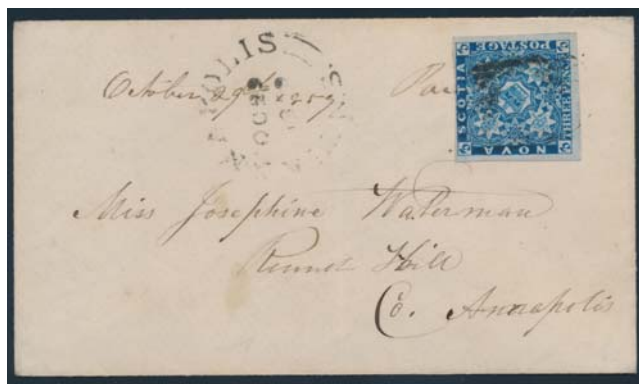 OLIS
October 29th 1859
NOVA
SCOTIA
POSTAGE
THREE PENCE
Miss Josephine Waterman
Hill
Co. Annapolis